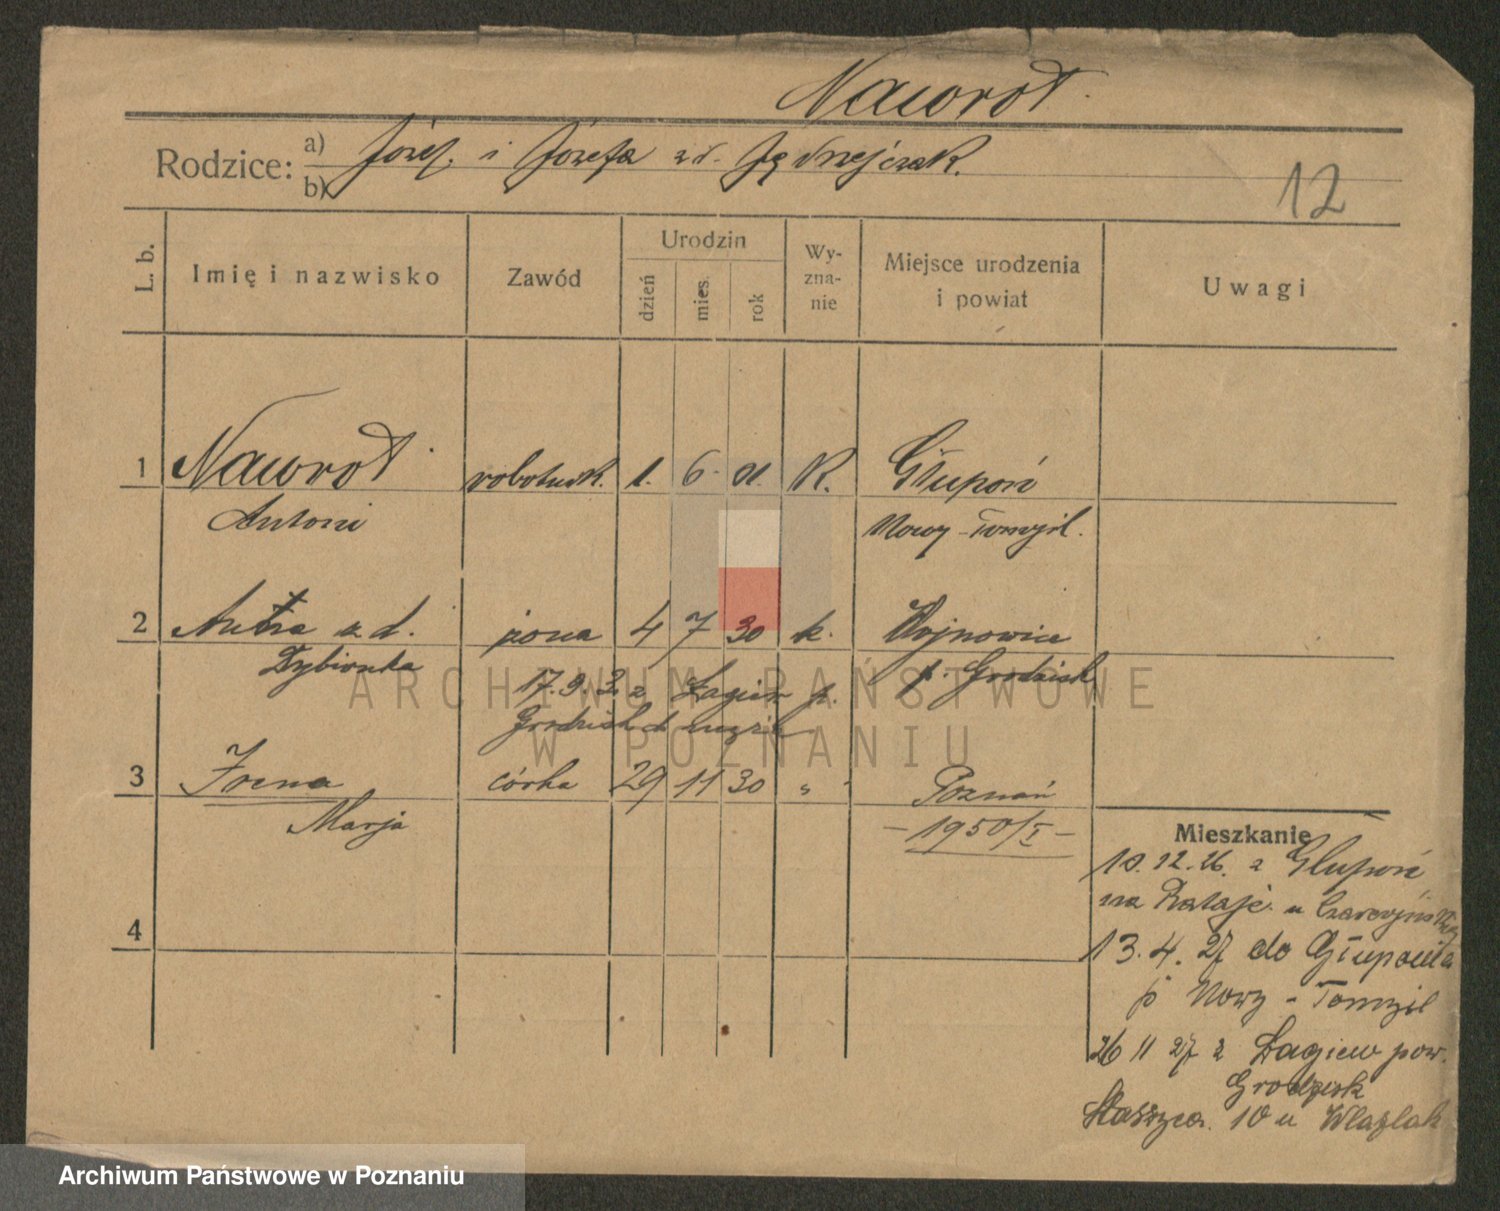 Nawrot.
Rodzice: a) Józef. i Józefa z d. Jędrzejczak.
b)
12
L. b.
Imię i nazwisko
Zawód
Urodzin
dzień
mies.
rok
Wy-
zna-
nie
Miejsce urodzenia
i powiat
Uwagi
1 Nawrot robotnik. 1. 6. 01. R. Głupoń
Antoni Nowy-Tomyśl.
2 Anna z d. żona 4 7 30 k. Wojnowice
Dybionka p. Grodzisk
17.9.3. z Łagiew p.
Grodzisk d męża
3 Irena córka 29 11 30 " Poznań
Marja – 1950/I –
4
Mieszkanie
10.12.26. z Głupoń
na Rataje. u
13.4.27 do Głuponia
p Nowy-Tomyśl
26 11 27 z Łagiew pow.
Grodzisk
Staszyca. 10 u Wlazlak
ARCHIWUM PAŃSTWOWE
W POZNANIU
Archiwum Państwowe w Poznaniu